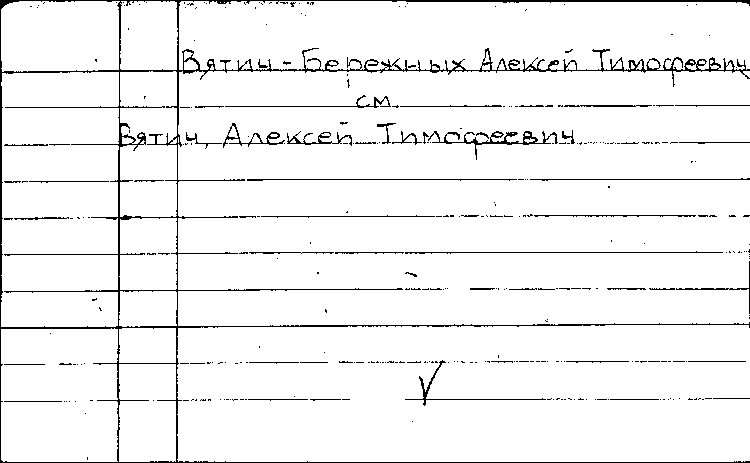 Вятич-Бережных Алексей Тимофеевич
см.
Вятич, Алексей Тимофеевич